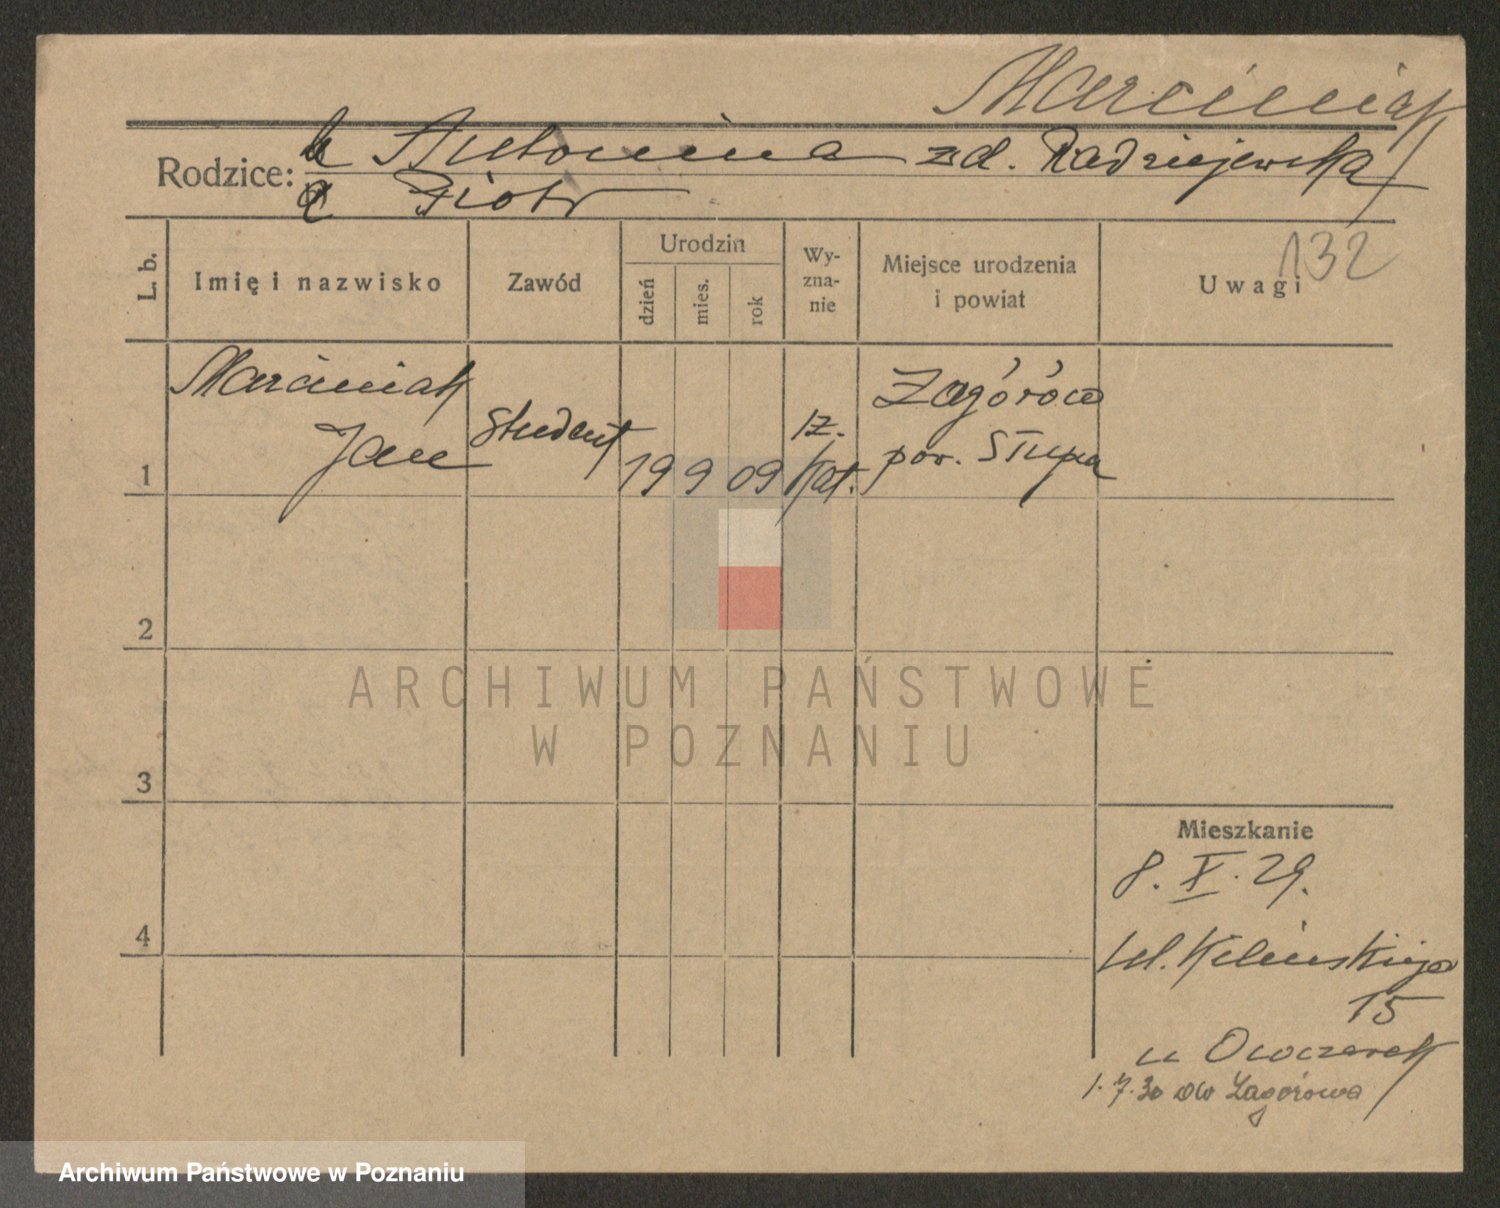 Marciniak
Rodzice: Antonina zd. Radziejewska
Piotr
132
L. b.
Imię i nazwisko
Zawód
Urodzin
dzień
mies.
rok
Wy-
zna-
nie
Miejsce urodzenia
i powiat
Uwagi
1
Marciniak
Jan
Student
19 9 09
rz.
kat.
Zagórów
pow. Słupca
2
3
4
Mieszkanie
8. X. 29.
ul. Kilińskiego
15
u Owczarek
1.7.30 do Zagórowa
ARCHIWUM PAŃSTWOWE
W POZNANIU
Archiwum Państwowe w Poznaniu